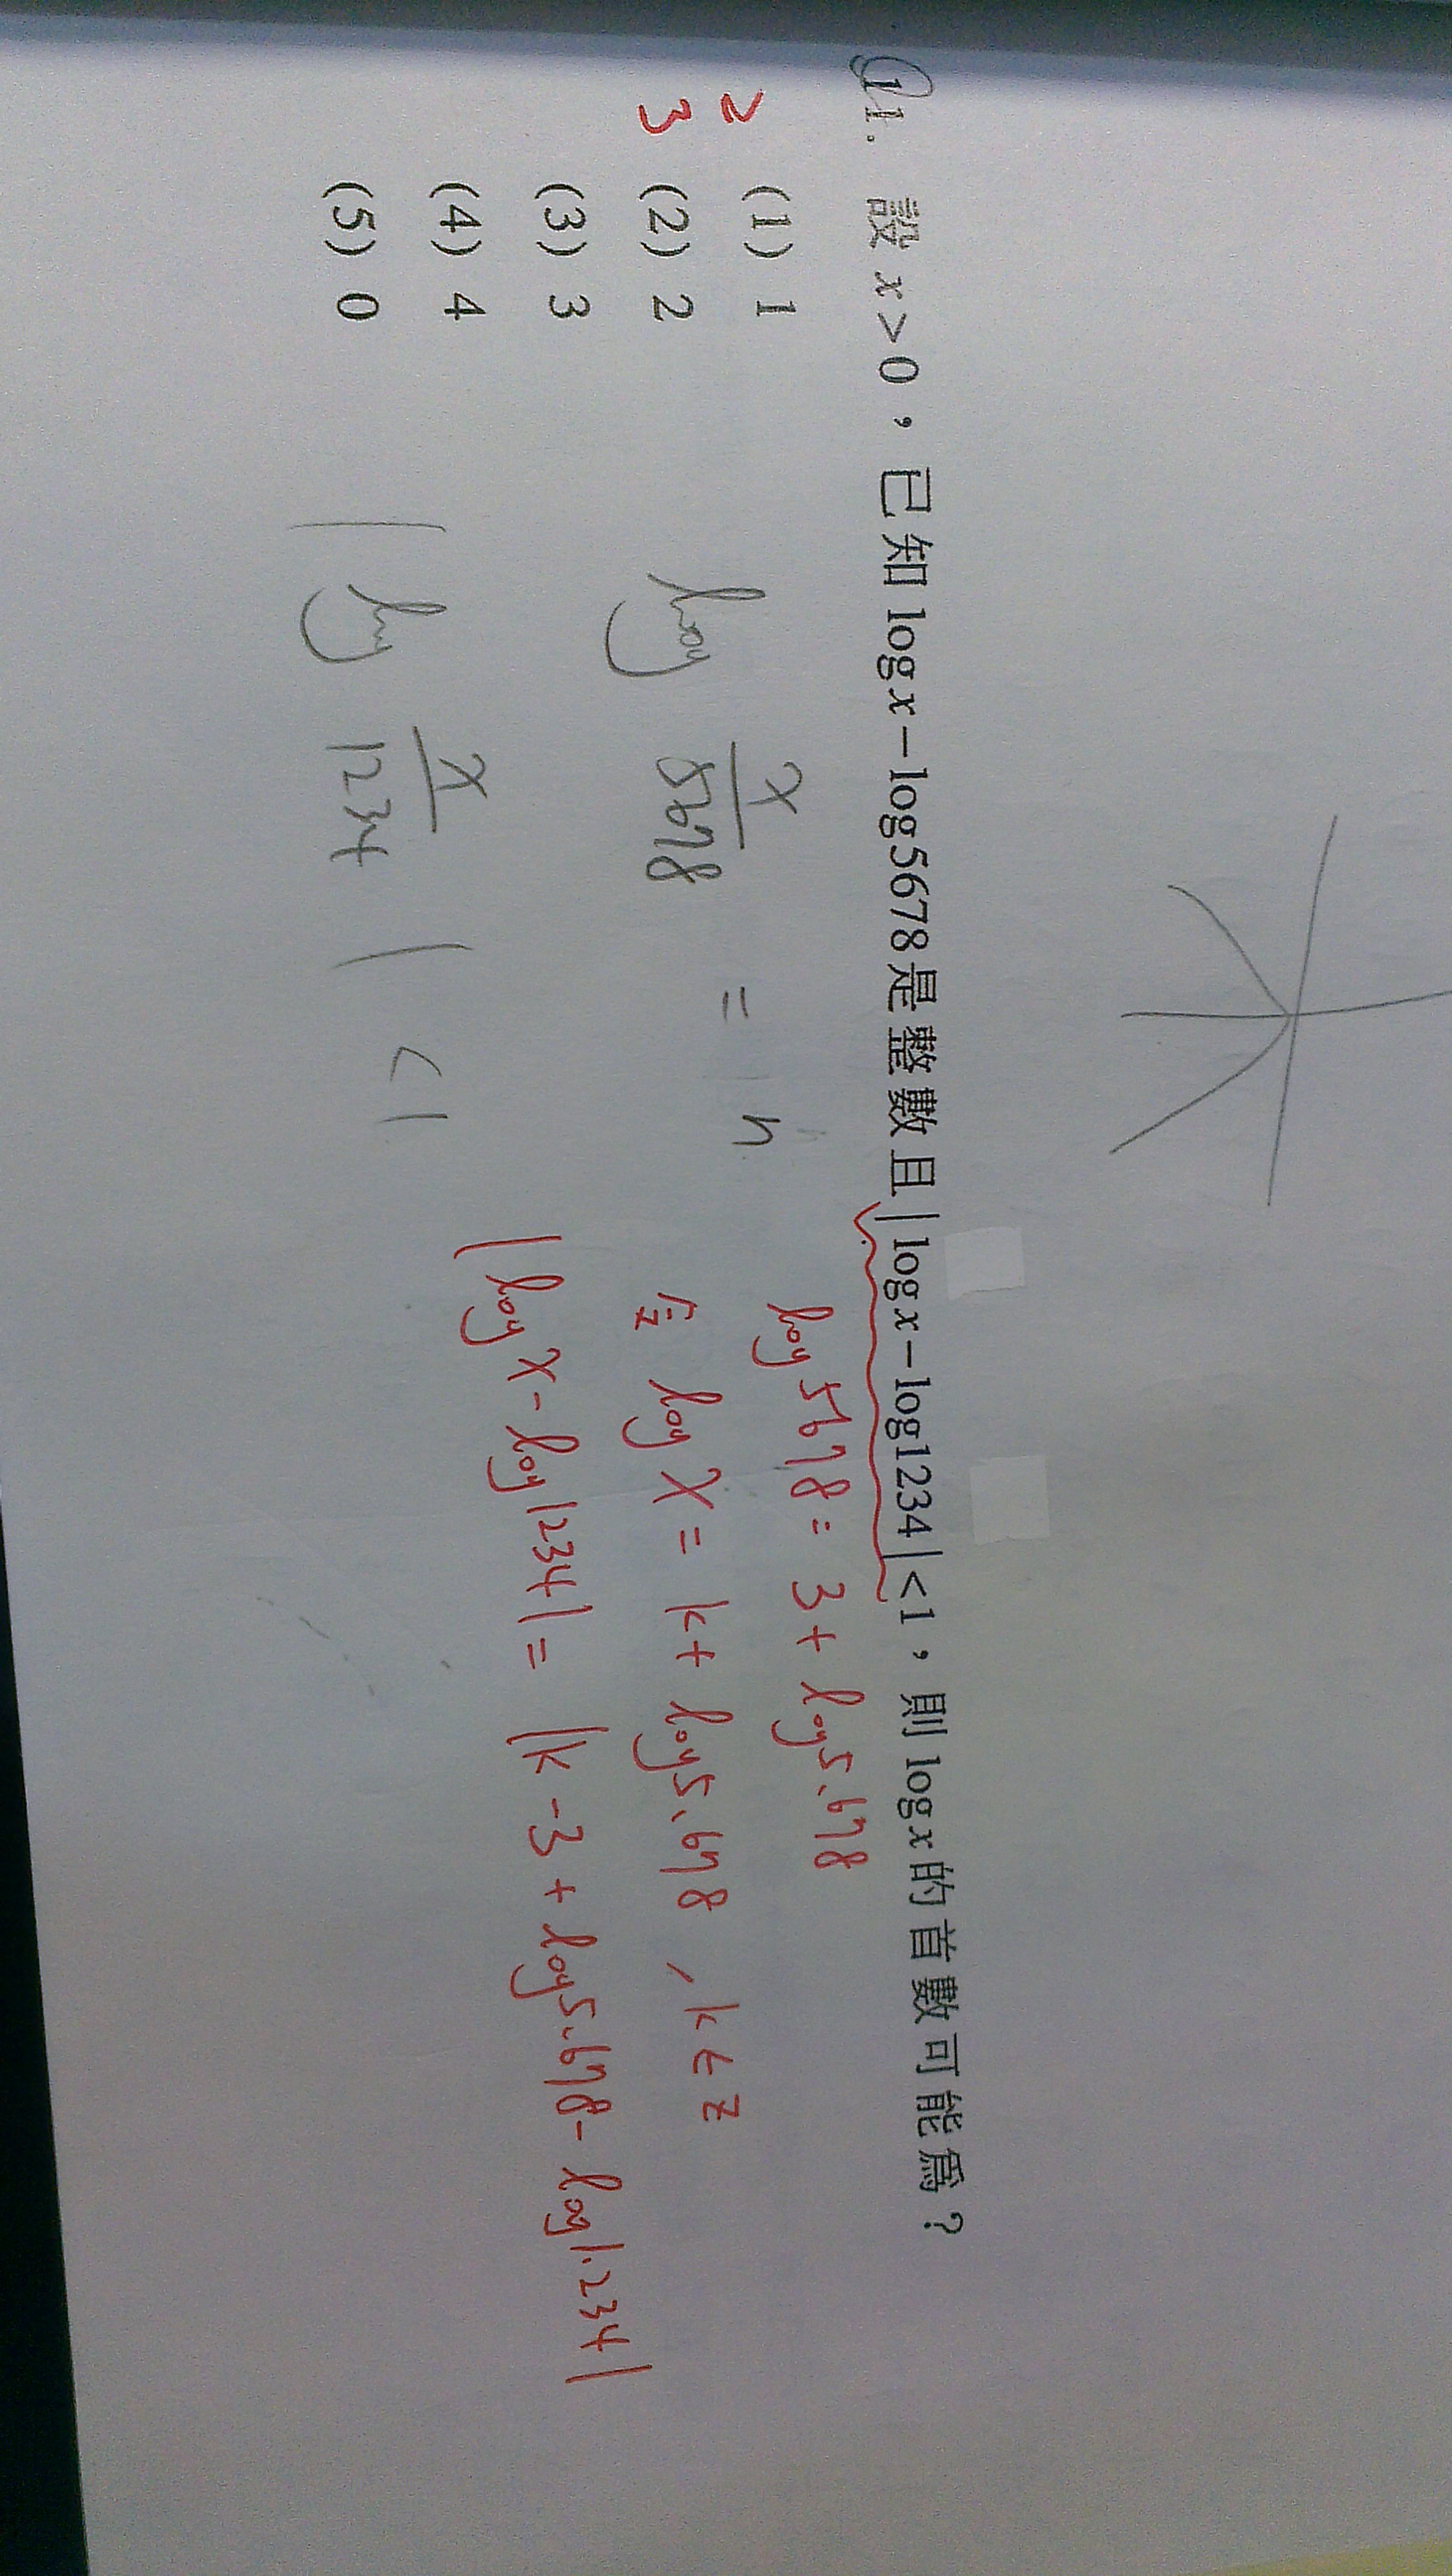 11. 設 x > 0，已知 log x − log 5678 是整數且 | log x − log 1234 | < 1，則 log x 的首數可能為？
2
3
(1) 1
(2) 2
(3) 3
(4) 4
(5) 0
log x/5678 = n
| log x/1234 | < 1
log 5678 = 3 + log 5.678
令 log x = k + log 5.678 , k ∈ Z
| log x − log 1234 | = | k − 3 + log 5.678 − log 1.234 |